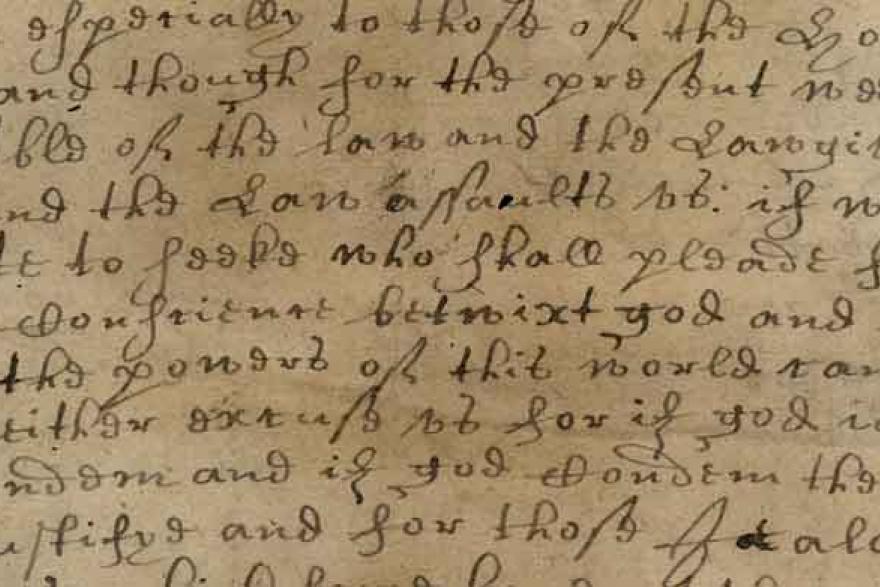 especially to those of the Lo
and though for the present we
ble of the law and the Lawgi
nd the Law assaults vs: if w
te to seeke who shall pleade f
Conscience betwixt god and
the powers of this world can
either excuse vs for if god
ndem and if god Condem the
ustifye and for those